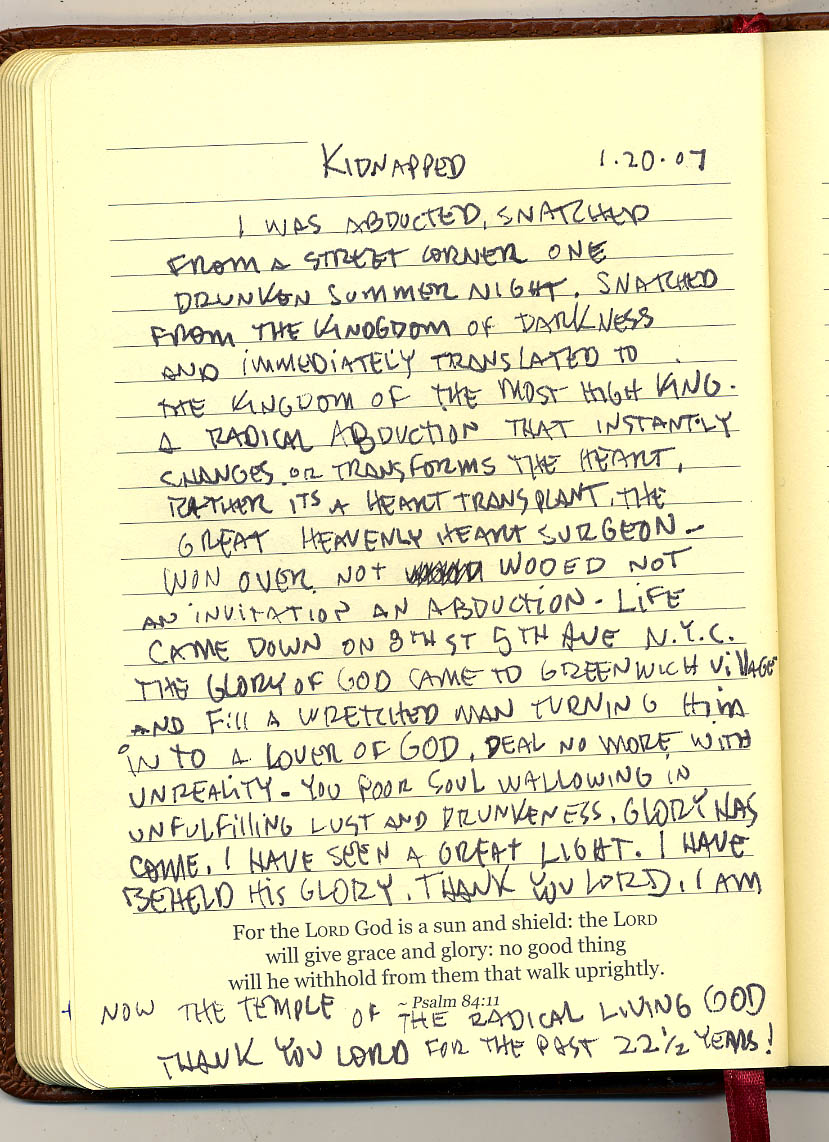 KIDNAPPED 1.20.07
I WAS ABDUCTED, SNATCHED
FROM A STREET CORNER ONE
DRUNKEN SUMMER NIGHT. SNATCHED
FROM THE KINOGDOM OF DARKNESS
AND IMMEDIATELY TRANSLATED TO
THE KINGDOM OF THE MOST HIGH KING.
A RADICAL ABDUCTION THAT INSTANTLY
CHANGES OR TRANSFORMS THE HEART,
RATHER ITS A HEART TRANSPLANT. THE
GREAT HEAVENLY HEART SURGEON -
WON OVER NOT WOOED NOT
AN INVITATION AN ABDUCTION - LIFE
CAME DOWN ON 8TH ST 5TH AVE N.Y.C.
THE GLORY OF GOD CAME TO GREENWICH VILLAGE
AND FILL A WRETCHED MAN TURNING HIM
INTO A LOVER OF GOD, DEAL NO MORE WITH
UNREALITY - YOU POOR SOUL WALLOWING IN
UNFULFILLING LUST AND DRUNKENESS. GLORY HAS
COME. I HAVE SEEN A GREAT LIGHT. I HAVE
BEHELD HIS GLORY. THANK YOU LORD. I AM
For the LORD God is a sun and shield: the LORD
will give grace and glory: no good thing
will he withhold from them that walk uprightly.
~ Psalm 84:11
NOW THE TEMPLE OF THE RADICAL LIVING GOD
THANK YOU LORD FOR THE PAST 22 1/2 YEARS!